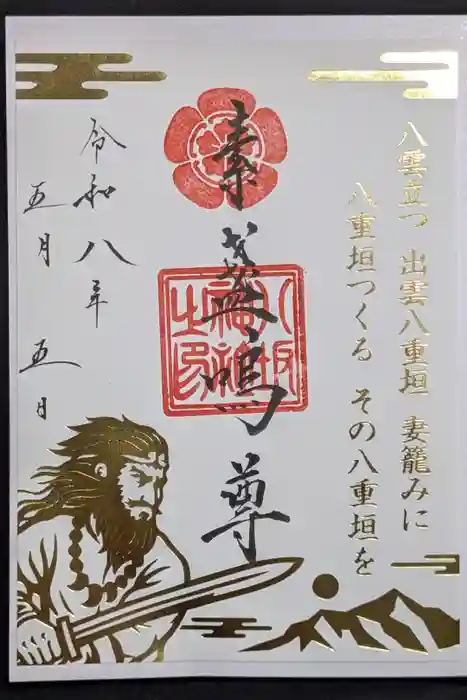 八雲立つ 出雲八重垣 妻籠みに
八重垣つくる その八重垣を
素盞嗚尊
八坂
神社
之印
令和八年
五月五日